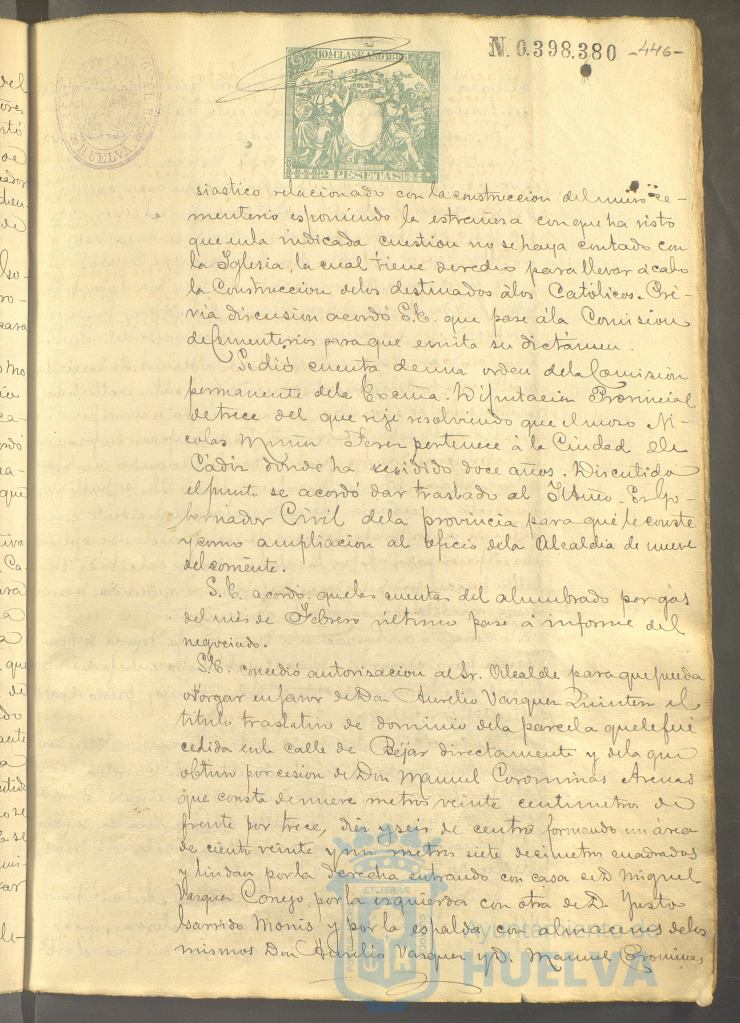 N. 0.398.380 -446-
10ª CLASE AÑO 18
COLON
2 PESETAS
HUELVA
siastico relacionado con la construccion del nuevo ce-
menterio esponiendo la estrañesa con que ha visto
que en la indicada cuestion no se haya contado con
la Iglesia, la cual tiene derecho para llevar á cabo
la Construccion de los destinados á los Católicos. Pré-
via discusion acordó S.E. que pase á la Comision
de Cementerios para que emita su dictámen.
Se dió cuenta de una orden de la Comision
permanente de la Excma. Diputacion Provincial
de trece del que rije resolviendo que el mozo Ni-
colas Muñoz Ferer pertenece á la Ciudad de
Cádiz donde ha residido doce años. Discutido
el punto se acordó dar traslado al Iltmo. Sr. Go-
bernador Civil de la provincia para que le conste
y como ampliacion al oficio de la Alcaldia de nueve
del corriente.
S.E. acordó que las cuentas del alumbrado por gas
del mes de Febrero último pase á informe del
negociado.
S.E. concedió autorizacion al Sr. Alcalde para que pueda
otorgar en favor de Don Aurelio Vazquez Quintero el
titulo traslativo de dominio de la parcela que le fué
cedida en la calle de Béjar directamente y de la que
obtuvo por cesion de Don Manuel Corominas Arenas
que consta de nueve metros veinte centimetros de
frente por trece, diez y seis de centro formando un área
de ciento veinte y un metros siete decimetros cuadrados
y lindan por la derecha entrando con casa de D. Miguel
Vazquez Conejo por la izquierda con otra de D. Justo
Garrido Monis y por la espalda con almacenes de los
mismos Don Aurelio Vazquez y D. Manuel Corominas
Ayuntamiento de
HUELVA